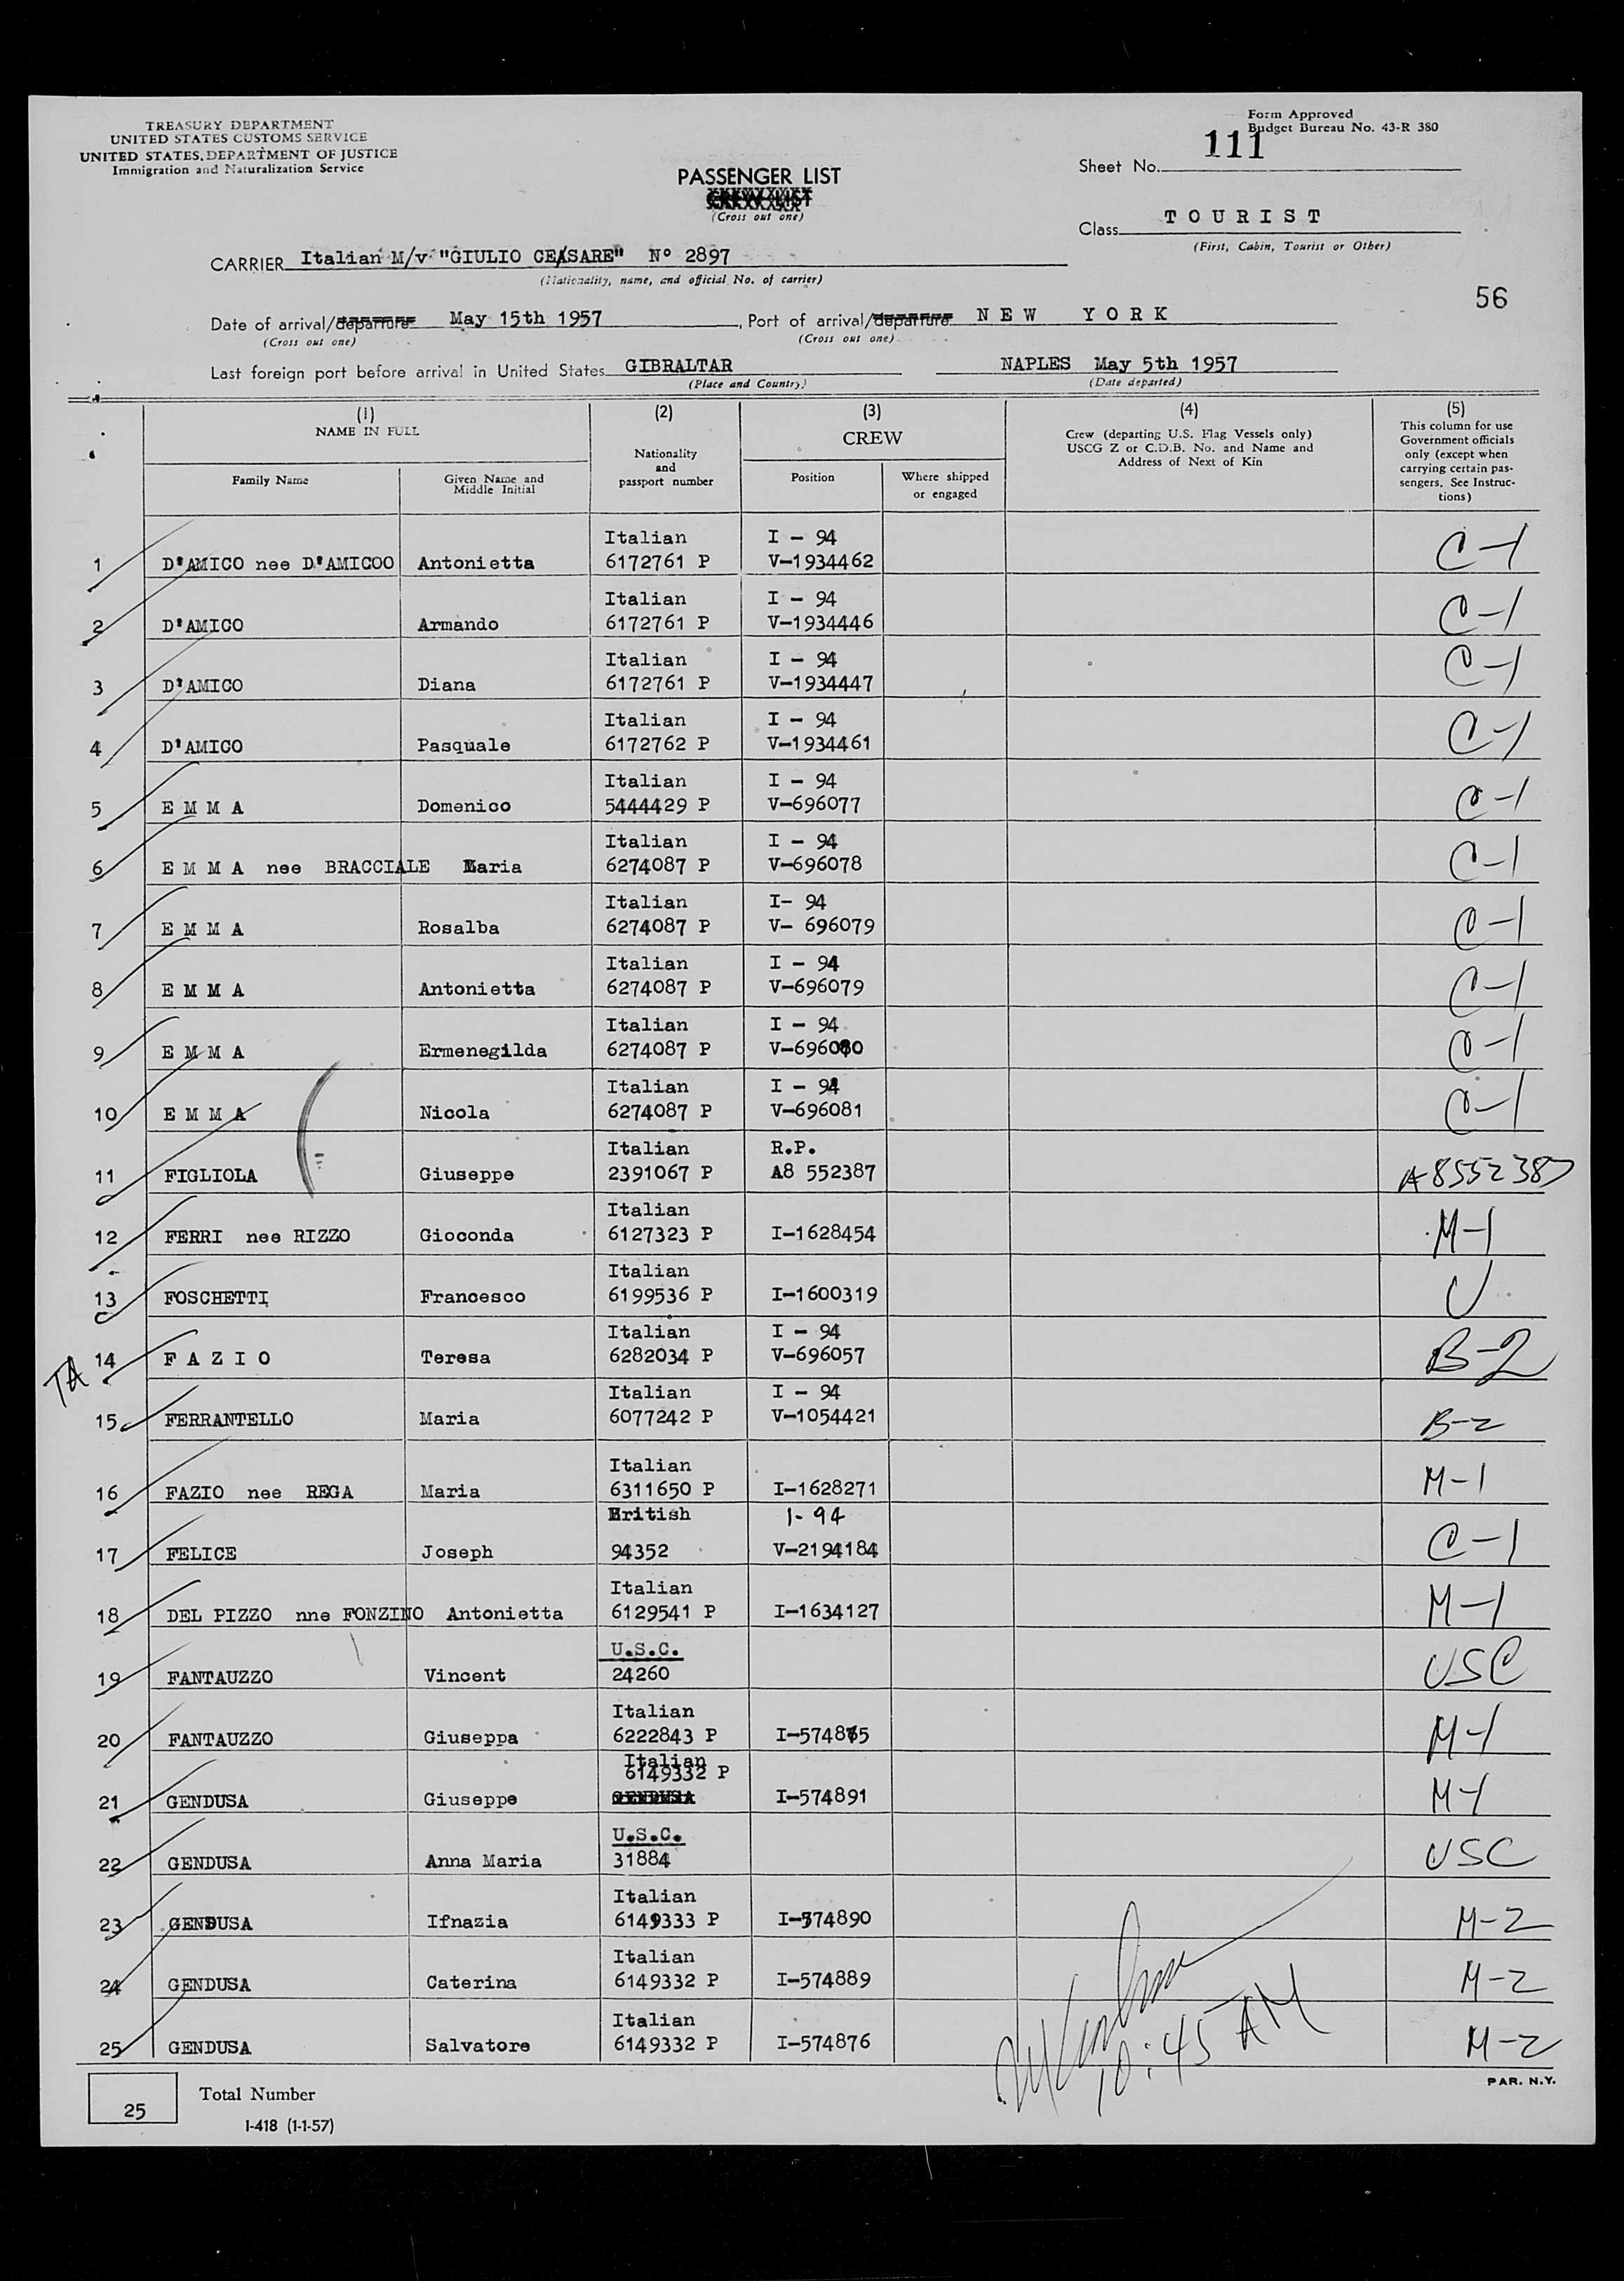 TREASURY DEPARTMENT
UNITED STATES CUSTOMS SERVICE
UNITED STATES DEPARTMENT OF JUSTICE
Immigration and Naturalization Service
Form Approved
Budget Bureau No. 43-R 380
Sheet No. 111
PASSENGER LIST
CREW LIST
(Cross out one)
Class TOURIST
(First, Cabin, Tourist or Other)
CARRIER Italian M/v "GIULIO CEASARE" Nº 2897
(Nationality, name, and official No. of carrier)
56
Date of arrival/departure May 15th 1957, Port of arrival/departure NEW YORK
(Cross out one) (Cross out one)
Last foreign port before arrival in United States GIBRALTAR NAPLES May 5th 1957
(Place and Country) (Date departed)
(1) NAME IN FULL
Family Name
Given Name and Middle Initial
(2) Nationality and passport number
(3) CREW
Position
Where shipped or engaged
(4) Crew (departing U.S. Flag Vessels only) USCG Z or C.D.B. No. and Name and Address of Next of Kin
(5) This column for use Government officials only (except when carrying certain passengers. See Instructions)
1 D'AMICO nee D'AMICOO Antonietta Italian 6172761 P I - 94 V-1934462 C-1
2 D'AMICO Armando Italian 6172761 P I - 94 V-1934446 C-1
3 D'AMICO Diana Italian 6172761 P I - 94 V-1934447 C-1
4 D'AMICO Pasquale Italian 6172762 P I - 94 V-1934461 C-1
5 E M M A Domenico Italian 5444429 P I - 94 V-696077 C-1
6 E M M A nee BRACCIALE Maria Italian 6274087 P I - 94 V-696078 C-1
7 E M M A Rosalba Italian 6274087 P I- 94 V- 696079 C-1
8 E M M A Antonietta Italian 6274087 P I - 94 V-696079 C-1
9 E M M A Ermenegilda Italian 6274087 P I - 94 V-696080 C-1
10 E M M A Nicola Italian 6274087 P I - 94 V-696081 C-1
11 FIGLIOLA Giuseppe Italian 2391067 P R.P. A8 552387 A8552387
12 FERRI nee RIZZO Gioconda Italian 6127323 P I-1628454 M-1
13 FOSCHETTI Francesco Italian 6199536 P I-1600319 U
TA 14 F A Z I O Teresa Italian 6282034 P I - 94 V-696057 B-2
15 FERRANTELLO Maria Italian 6077242 P I - 94 V-1054421 B-2
16 FAZIO nee REGA Maria Italian 6311650 P I-1628271 M-1
17 FELICE Joseph British 94352 I-94 V-2194184 C-1
18 DEL PIZZO nne FONZINO Antonietta Italian 6129541 P I-1634127 M-1
19 FANTAUZZO Vincent U.S.C. 24260 USC
20 FANTAUZZO Giuseppa Italian 6222843 P I-574875 M-1
21 GENDUSA Giuseppe Italian 6149332 P GENDUSA I-574891 M-1
22 GENDUSA Anna Maria U.S.C. 31884 USC
23 GENDUSA Ifnazia Italian 6149333 P I-574890 M-2
24 GENDUSA Caterina Italian 6149332 P I-574889 M-2
25 GENDUSA Salvatore Italian 6149332 P I-574876 M-2
10:45 AM
PAR. N.Y.
25 Total Number
I-418 (1-1-57)